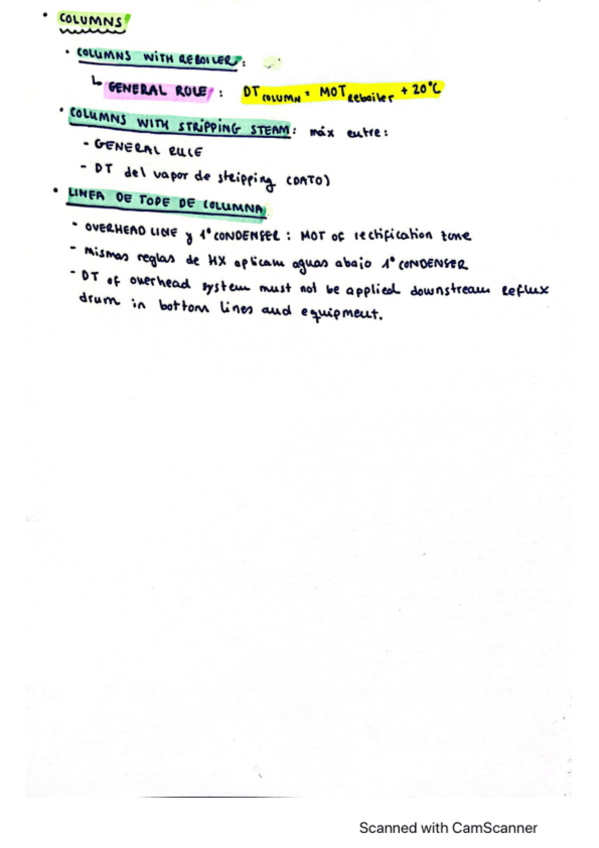 • COLUMNS
• COLUMNS WITH REBOILER:
↳ GENERAL RULE: DT COLUMN = MOT Reboiler + 20°C
• COLUMNS WITH STRIPPING STEAM: máx entre:
- GENERAL RULE
- DT del vapor de stripping (DATO)
• LINEA DE TOPE DE COLUMNA
- OVERHEAD LINE y 1º CONDENSER: MOT of rectification zone
- Mismas reglas de HX aplican aguas abajo 1º CONDENSER
- DT of overhead system must not be applied downstream reflux
drum in bottom lines and equipment.
Scanned with CamScanner